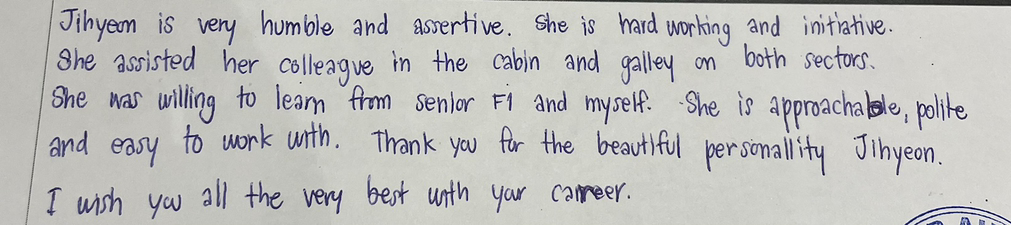 Jihyeon is very humble and assertive. She is hard working and initiative.
She assisted her colleague in the cabin and galley on both sectors.
She was willing to learn from senior F1 and myself. She is approachable, polite
and easy to work with. Thank you for the beautiful personallity Jihyeon.
I wish you all the very best with your carreer.